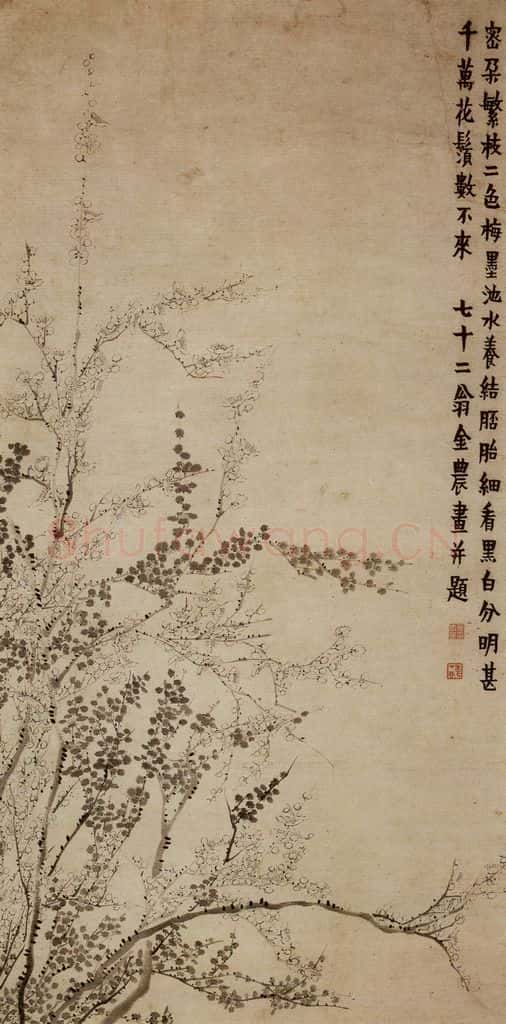 密朵繁枝二色梅墨池水養結胚胎細看黑白分明甚
千萬花鬚數不來　七十二翁金農畫并題
Shufawang.CN